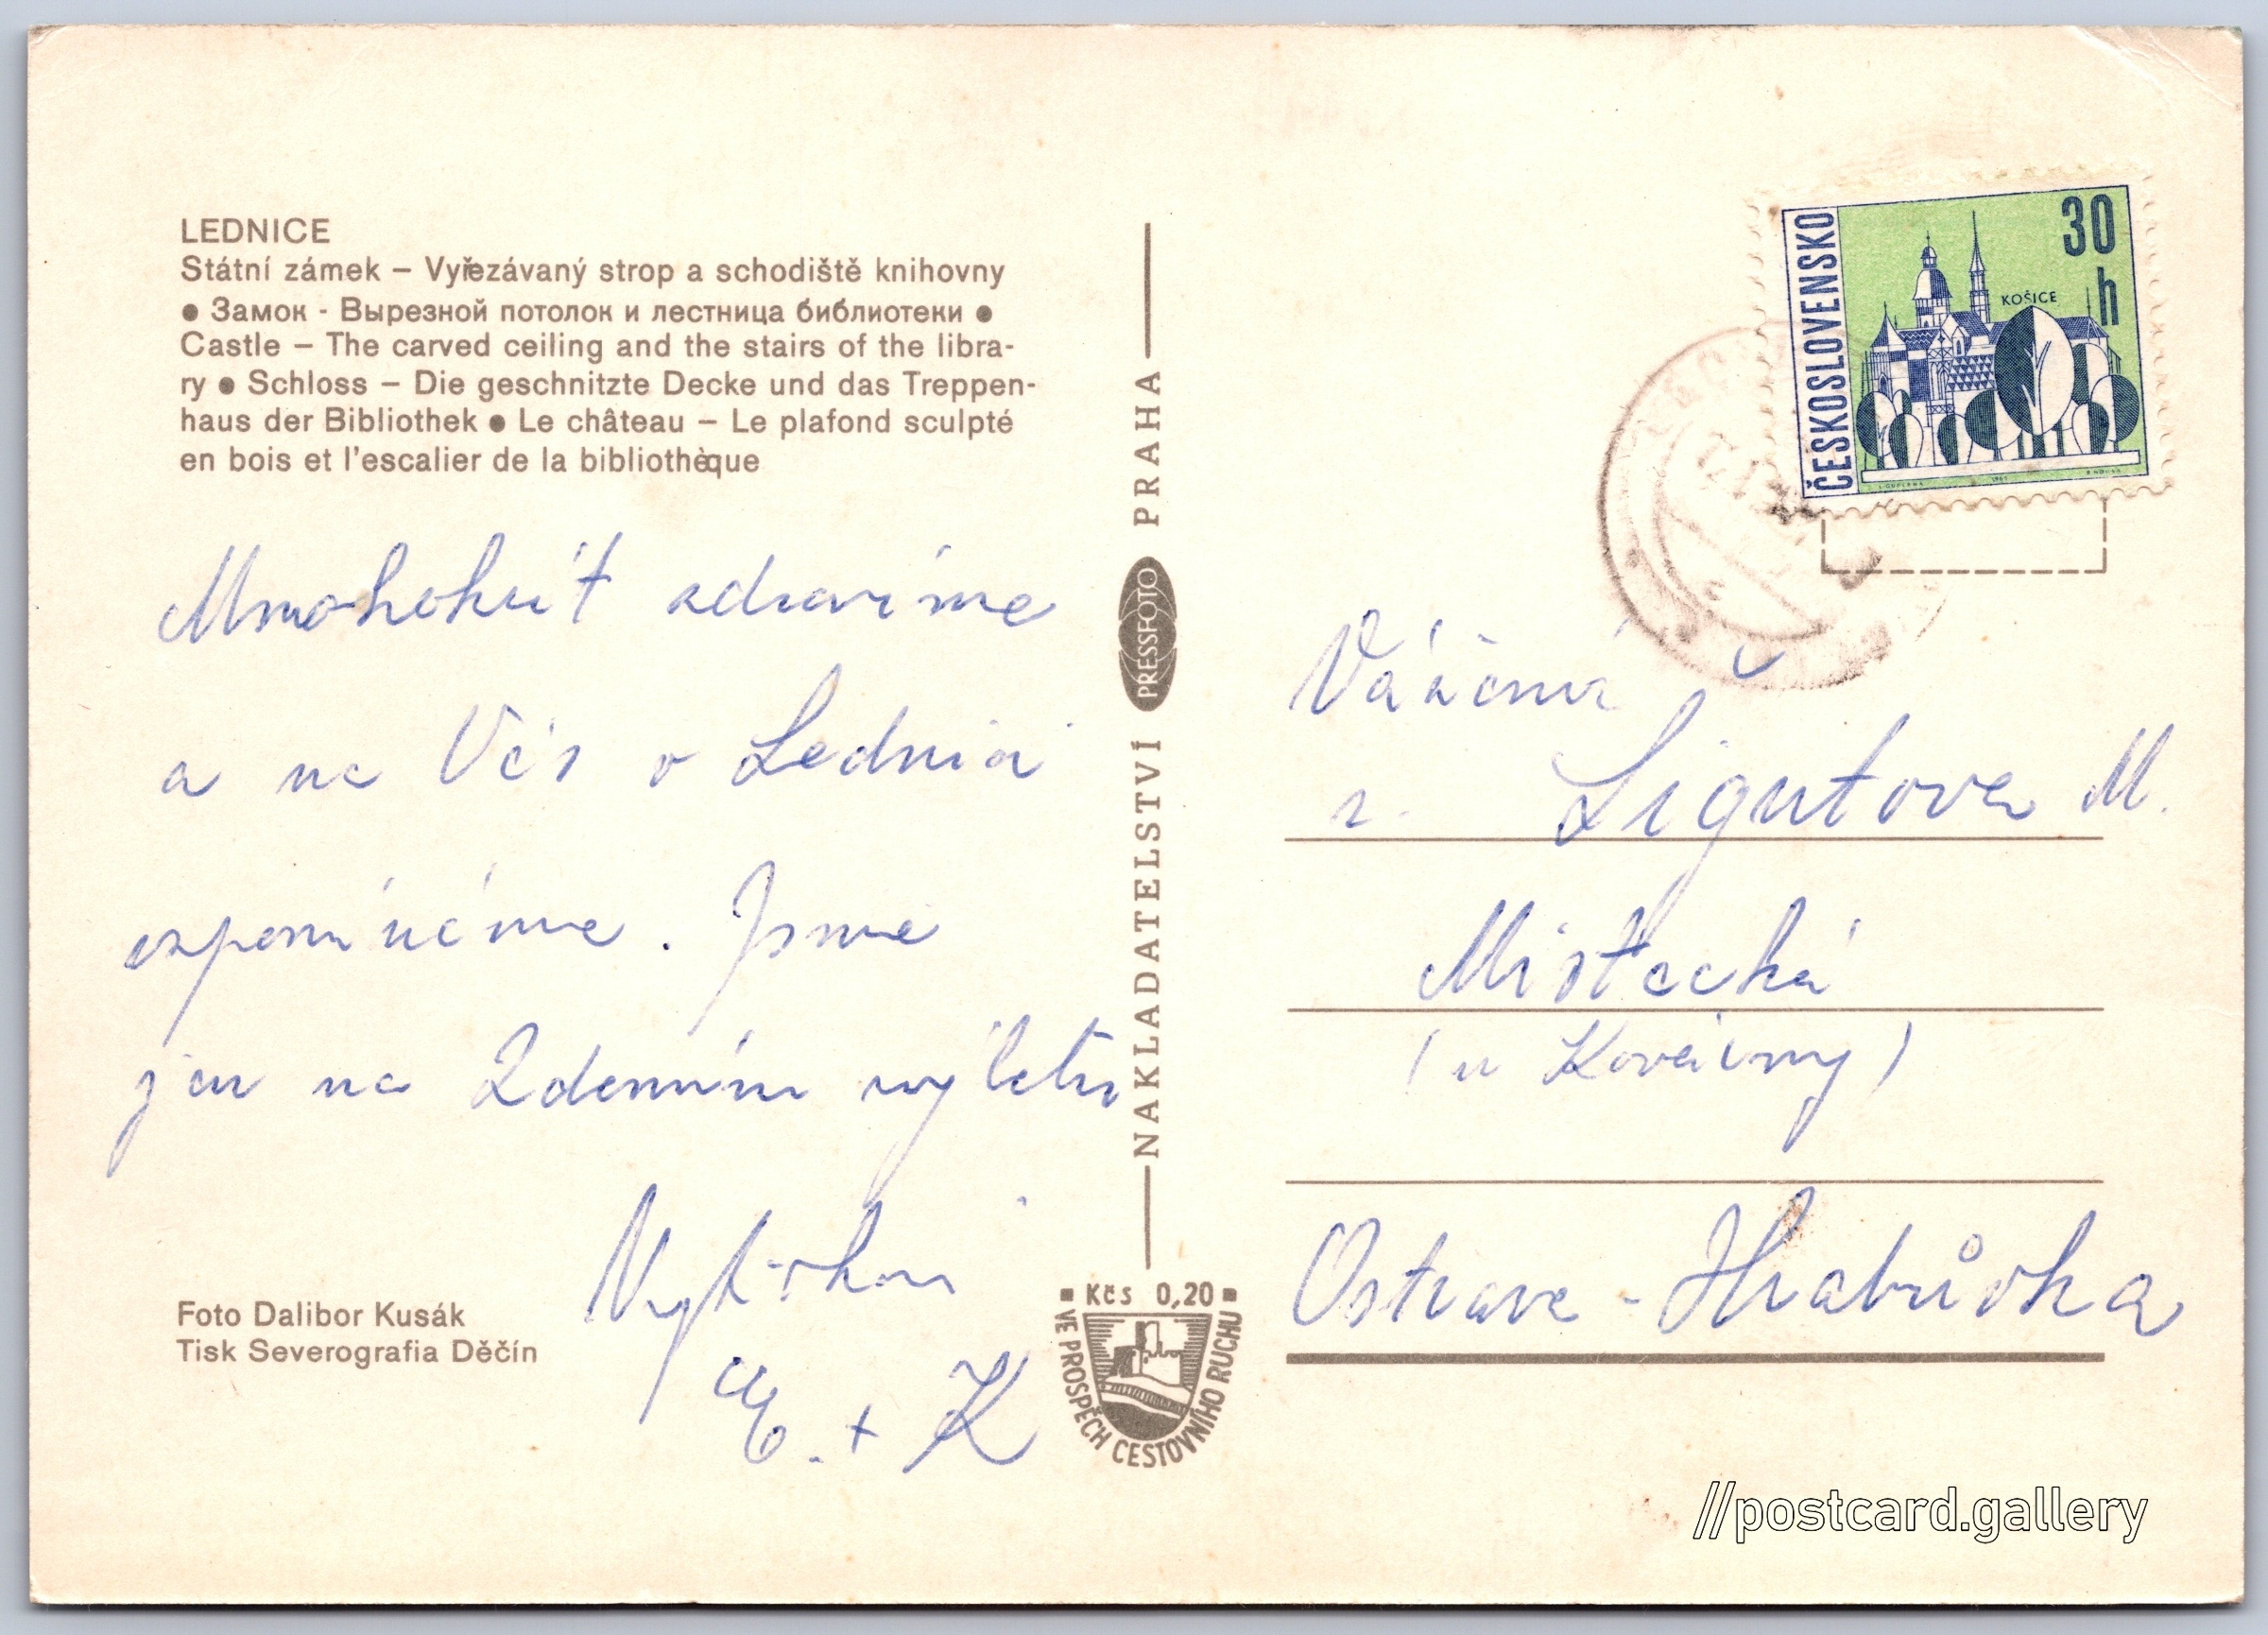 LEDNICE
Státní zámek – Vyřezávaný strop a schodiště knihovny
● Замок - Вырезной потолок и лестница библиотеки ●
Castle – The carved ceiling and the stairs of the libra-
ry ● Schloss – Die geschnitzte Decke und das Treppen-
haus der Bibliothek ● Le château – Le plafond sculpté
en bois et l'escalier de la bibliothèque
Mnohokrát zdravíme
a na Vás v Lednici
vzpomínáme. Jsme
jen na 2denním výletu
E. + K
Foto Dalibor Kusák
Tisk Severografia Děčín
NAKLADATELSTVÍ PRESSFOTO PRAHA
Kčs 0,20
VE PROSPĚCH CESTOVNÍHO RUCHU
ČESKOSLOVENSKO
30
h
KOŠICE
Vážená
Ligutova M.
Místecká
(u Kovárny)
Ostrava - Hrabůvka
//postcard.gallery